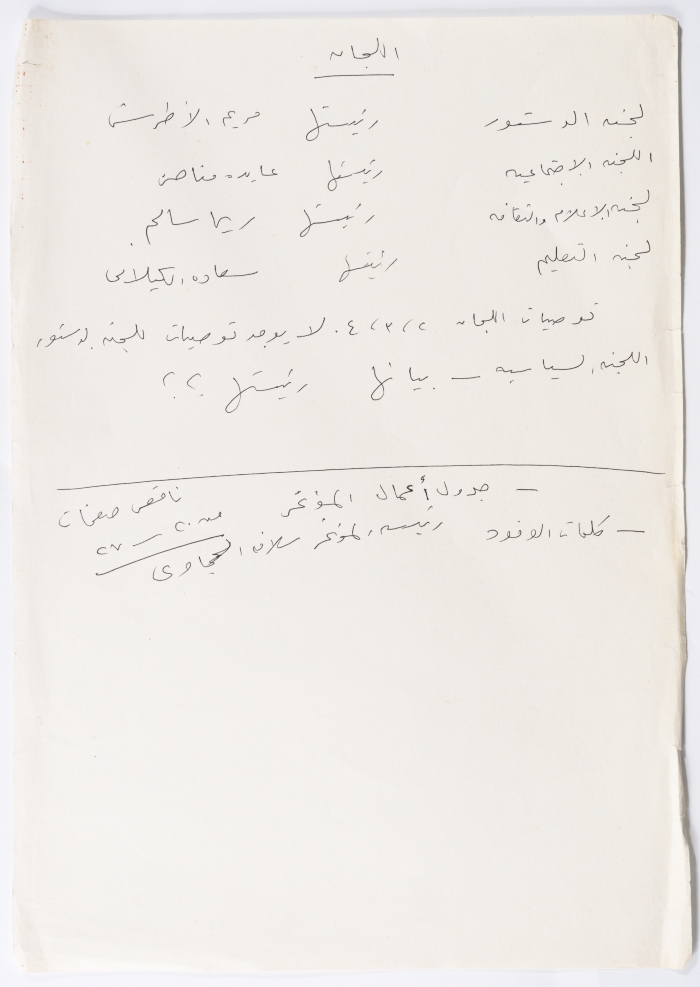 اللجان
لجنه الدستور رئيستها مريم الأطرش
اللجنه الاجتماعيه رئيستها عايده مناصر
لجنه الاعلام والثقافه رئيستها ريما سالم.
لجنه التعليم رئيستها سعاده الكيلاني
توصيات اللجان ٤/٣/٢. لا يوجد توصيات للجنه الدستور
اللجنه السياسيه – بيانها رئيستها ؟؟
– جدول أعمال المؤتمر ناقص صفحات
من ٢٠ – ٢٧
– كلمات الوفود رئيسه المؤتمر سلافه الحجاوي